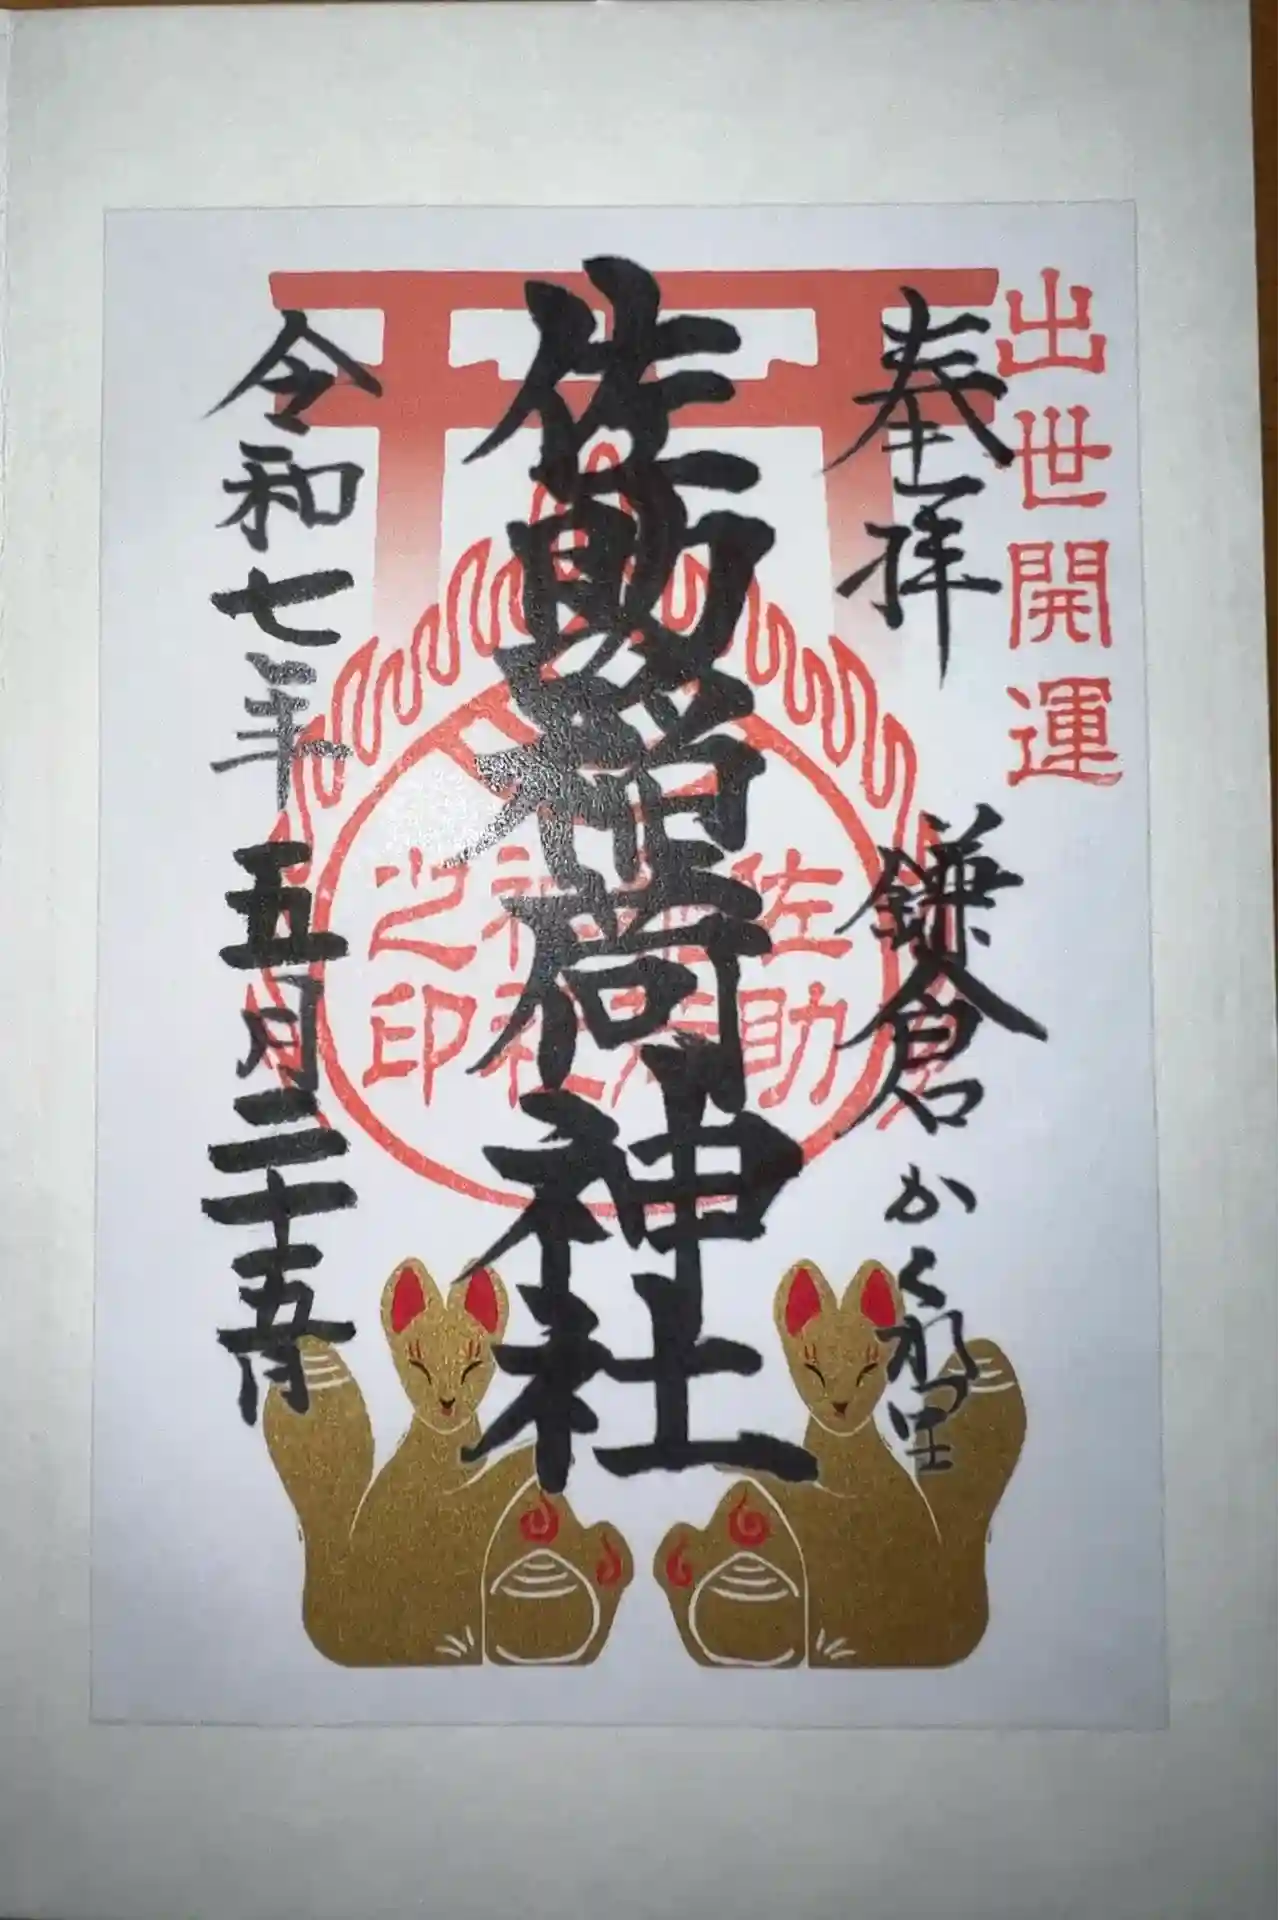 出世開運
奉拝
鎌倉かくれ里
佐助稲荷神社
佐助
稲荷
神社
之印
令和七年五月二十五日